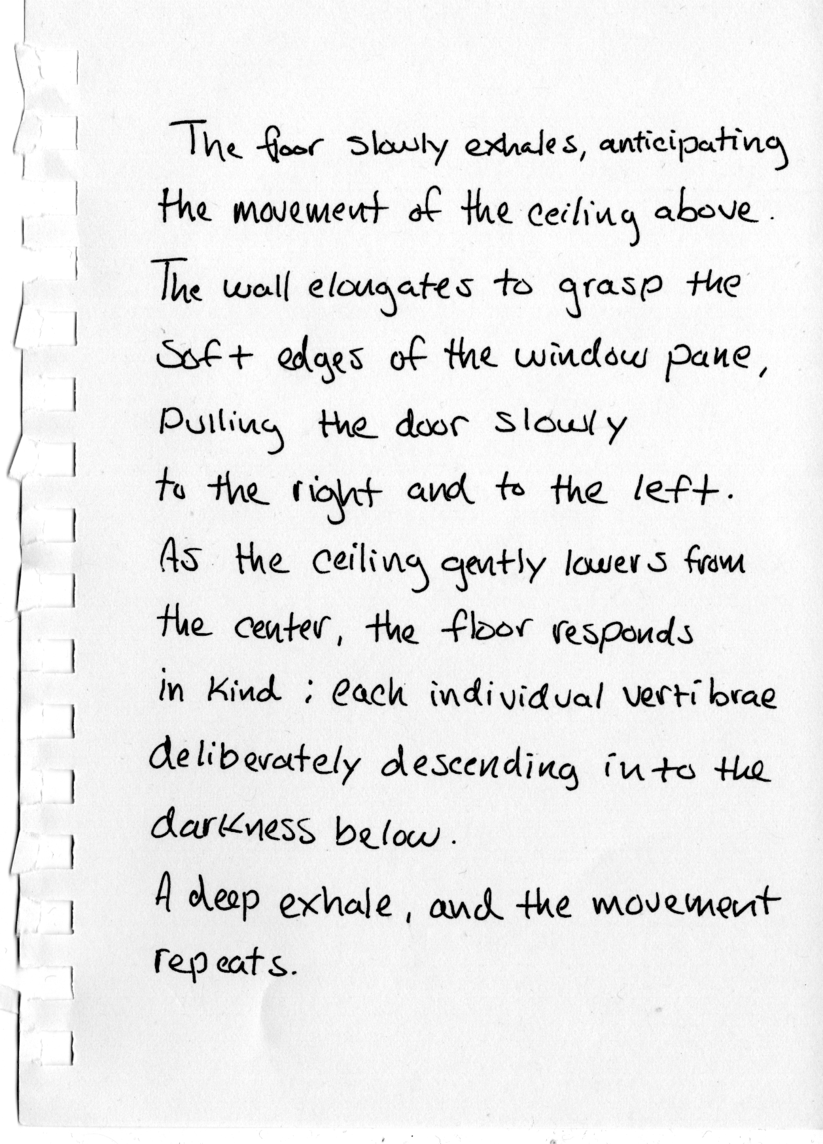 The floor slowly exhales, anticipating
the movement of the ceiling above.
The wall elongates to grasp the
soft edges of the window pane,
pulling the door slowly
to the right and to the left.
As the ceiling gently lowers from
the center, the floor responds
in kind ; each individual vertibrae
deliberately descending into the
darkness below.
A deep exhale, and the movement
repeats.